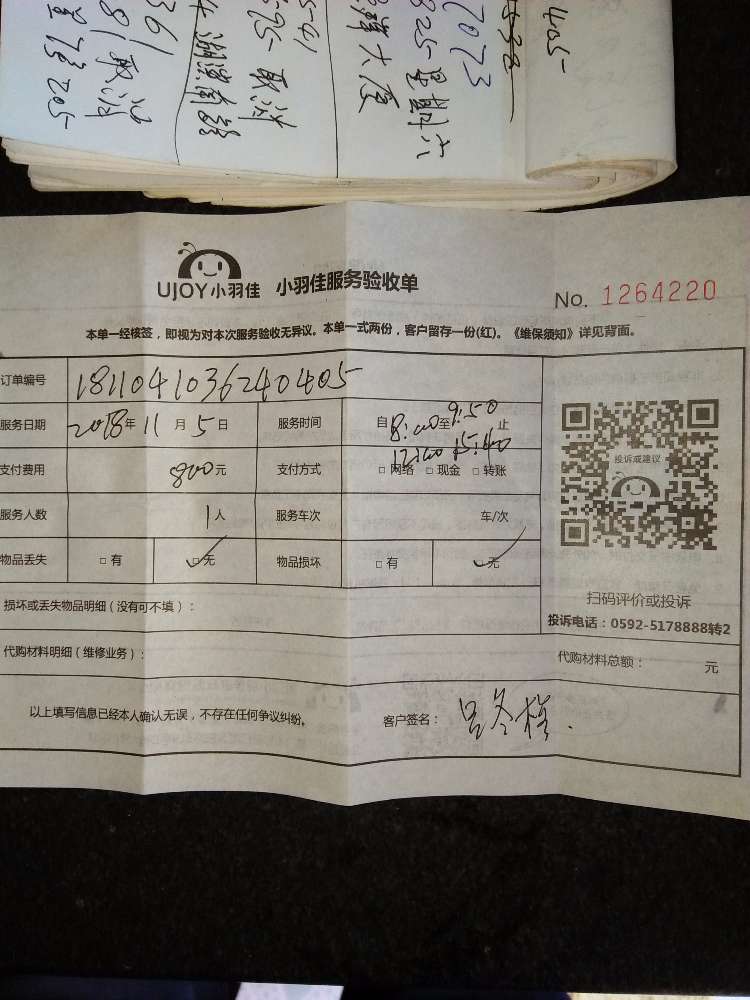 405
7073
825 星期六
大度
取消
取消
205
UJOY小羽佳 小羽佳服务验收单
No. 1264220
本单一经核签，即视为对本次服务验收无异议。本单一式两份，客户留存一份(红)。《维保须知》详见背面。
订单编号 1811041036240405
服务日期 2018年 11月 5日 服务时间 自8:00至9:50止
12:00 15:40
支付费用 800元 支付方式 □网络 □现金 □转账
服务人数 1人 服务车次 车/次
物品丢失 □有 □无 物品损坏 □有 □无
投诉或建议
扫码评价或投诉
投诉电话：0592-5178888转2
损坏或丢失物品明细（没有可不填）：
代购材料明细（维修业务）： 代购材料总额： 元
以上填写信息已经本人确认无误，不存在任何争议纠纷。 客户签名：